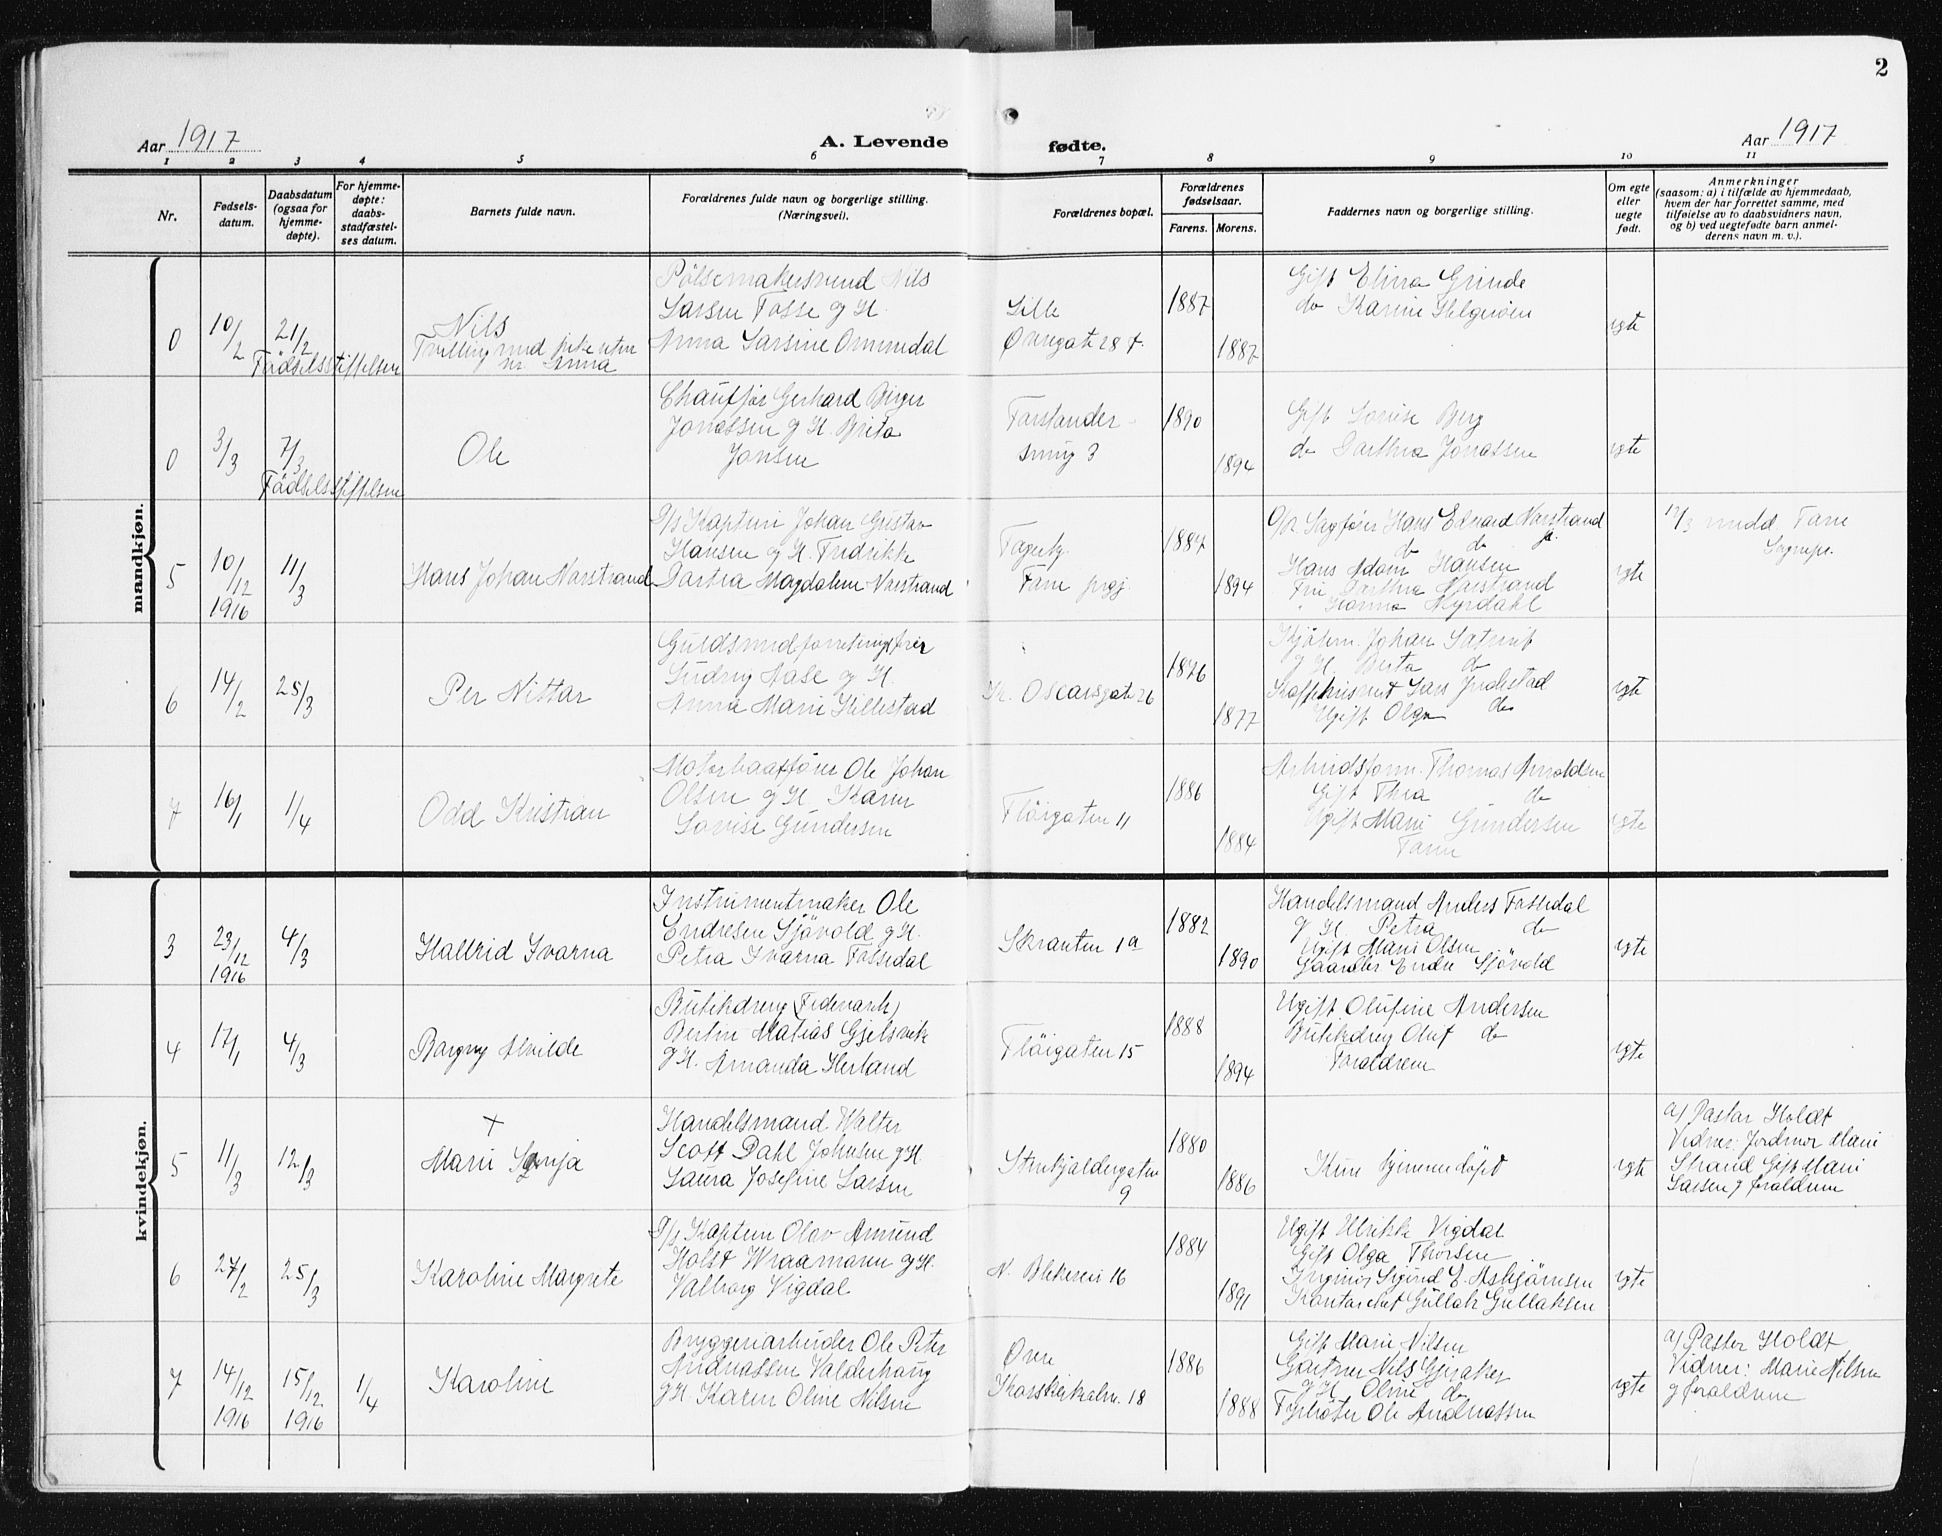 2
Aar 1917
A. Levende
fødte.
Aar 1917
1 2 3 4 5 6 7 8 9 10 11
Nr.
Fødsels-
datum.
Daabsdatum
(ogsaa for
hjemme-
døpte).
For hjemme-
døpte:
daabs-
stadfæstel-
ses datum.
Barnets fulde navn.
Forældrenes fulde navn og borgerlige stilling.
(Næringsvei).
Forældrenes bopæl.
Forældrenes
fødselsaar.
Farens. Morens.
Faddernes navn og borgerlige stilling.
Om egte
eller
uegte
født.
Anmerkninger
(saasom: a) i tilfælde av hjemmedaab,
hvem der har forrettet samme, med
tilføielse av to daabsvidners navn,
og b) ved uegtefødte barn anmel-
derens navn m. v.).
mandkjøn.
0
10/2
21/2
Fødselsstiftelsen
Nils
Tvilling med
Anna
Pølsemakersvend Nils
Larsen Fosse og H.
Anna Larsine Ommedal
Lille
Øvregate 28
1887
1887
Gift Elina Grinde
do Karine Helgesen
egte
0
3/3
7/3
Fødselsstiftelsen
Ole
Chauffør Gerhard Birger
Jonassen og H. Brita
Jansen
Forstander-
smug 3
1890
1894
Gift Lovise Berg
do Dorthea Jonassen
egte
5
10/12
1916
11/3
Hans Johan Narstrand
D/s Kaptein Johan Gustav
Hansen og H. Fredrikke
Dortea Magdalene Narstrand
Fane prgj.
1887
1894
O/r Sagfører Hans Edvard Narstrand
do do jr.
Hans Adam Hansen
Frk Dorthea Narstrand
" Hanna Myrdahl
egte
17/3 medd. Fane
Sognepr.
6
14/2
25/3
Per Nittar
Guldsmedforretningsfører
Ludvig Aase og H.
Anna Marie Hillestad
Kr. Oscarsgate 26
1876
1877
Kjøbm. Johan
og H. Berta do
Lars Indrestad
Ugift Olga do
egte
7
16/1
1/4
Odd Kristian
Motorbaatfører Ole Johan
Olsen og H. Karen
Lovise Gundersen
Fløigaten 11
1886
1884
Arbeidsform. Thomas Arnoldsen
Gift Thea do
Ugift Marie Gundersen
Faren
egte
kvindekjøn.
3
23/12
1916
4/3
Halfrid Ivarna
Instrumentmaker Ole
Endresen Sjøvold og H.
Petra Ivarna Fossedal
Skranten 1a
1882
1890
Handelsmand Anders Fossedal
og H. Petra do
Ugift Marie Olsen
Gaardbr Endre Sjøvold
egte
4
17/1
4/3
Borgny Alvilde
Butikdreng (Fedevareh)
Bertin Matias Gjelsvik
og H. Amanda Herland
Fløigaten 15
1888
1894
Ugift Olufine Andersen
Butikdreng Oluf do
Forældrene
egte
5
11/3
12/3
+
Marie Sonja
Handelsmand Walter
Scott Dahl Johnsen og H.
Laura Josefine Larsen
Strukjeldergaten
9
1880
1886
Kun hjemmedøpt
egte
af Pastor Holdt
Vidner: Jordmor Marie
Strand Gift Marie
Larsen og forældrene
6
27/2
25/3
Karoline Margrete
D/s Kaptein Olav Amund
Holst Wraamann og H.
Valborg Vigdal
N. Blekeveien 16
1884
1891
Ugift Ulrikke Vigdal
Gift Olga Thorsen
Ingeniør Sigurd E. Asbjørnsen
Kontorchef Gullak Gullaksen
egte
7
14/12
1916
15/12
1916
1/4
Karoline
Bryggeriarbeider Ole Peter
Andreassen Valderhaug
og H. Karen Oline Nilsen
Øvre
Korskirkealm. 18
1886
1888
Gift Marie Nilsen
Gartner Nils Gjeraker
og H. Oline do
Fyrbøter Ole Andreassen
egte
af Pastor Holdt
Vidner: Marie Nilsen
og forældrene